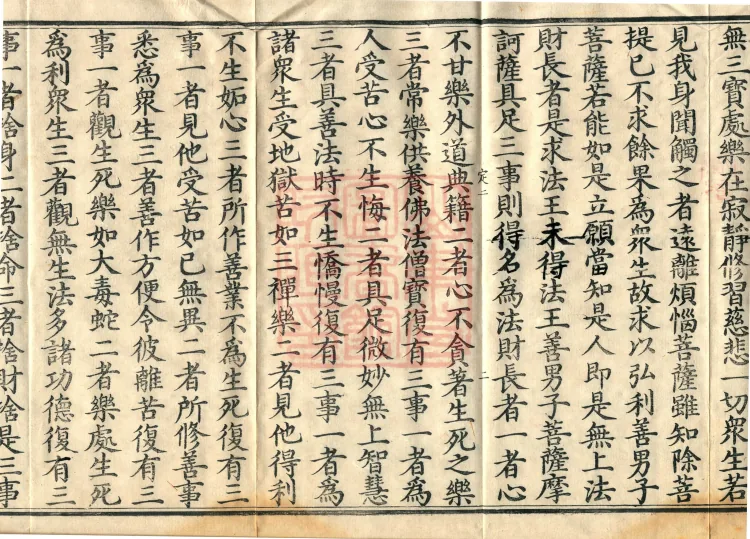 無三寶處樂在寂靜修習慈悲一切衆生若
見我身聞觸之者遠離煩惱菩薩雖知除菩
提已不求餘果為衆生故求以弘利善男子
菩薩若能如是立願當知是人即是無上法
財長者是求法王未得法王善男子菩薩摩
訶薩具足三事則得名為法財長者一者心
定二
二
不甘樂外道典籍二者心不貪著生死之樂
三者常樂供養佛法僧寶復有三事一者為
人受苦心不生悔二者具足微妙無上智慧
三者具善法時不生憍慢復有三事一者為
諸衆生受地獄苦如三禪樂二者見他得利
不生妬心三者所作善業不為生死復有三
事一者見他受苦如己無異二者所修善事
悉為衆生三者善作方便令彼離苦復有三
事一者觀生死樂如大毒蛇二者樂處生死
為利衆生三者觀無生法多諸功德復有三
事一者捨身二者捨命三者捨財捨是三事